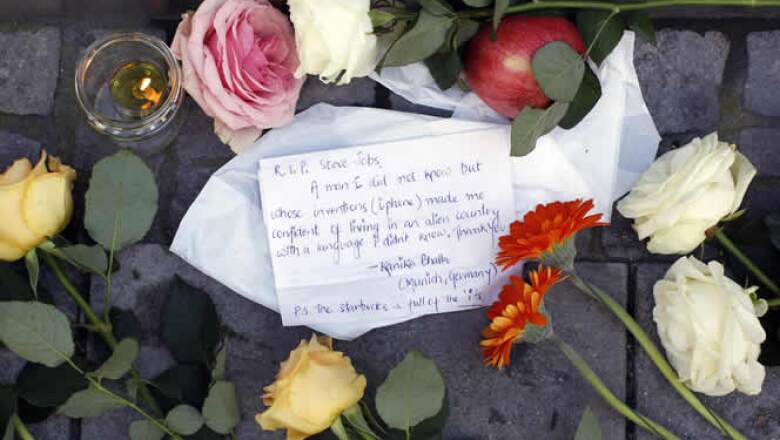 R.I.P. Steve Jobs.
A man I did not know but
whose inventions (iphone) made me
confident of living in an alien country
with a language I didn't know. Thank you
- Kanika Bhatt
(Munich, Germany)
P.S. The Starbucks is full of the 'i's